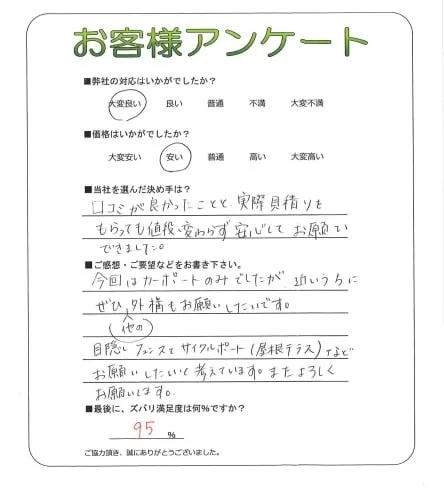 お客様アンケート
■弊社の対応はいかがでしたか?
大変良い 良い 普通 不満 大変不満
■価格はいかがでしたか?
大変安い 安い 普通 高い 大変高い
■当社を選んだ決め手は?
口コミが良かったことと、実際見積りを
もらっても値段変わらず安心してお願い
できました。
■ご感想・ご要望などをお書き下さい。
今回はカーポートのみでしたが、近いうちに
ぜひ外構もお願いしたいです。
他の
目隠しフェンスとサイクルポート(屋根テラス)など
お願いしたいと考えています。またよろしく
お願いします。
■最後に、ズバリ満足度は何%ですか?
95 %
ご協力頂き、誠にありがとうございました。